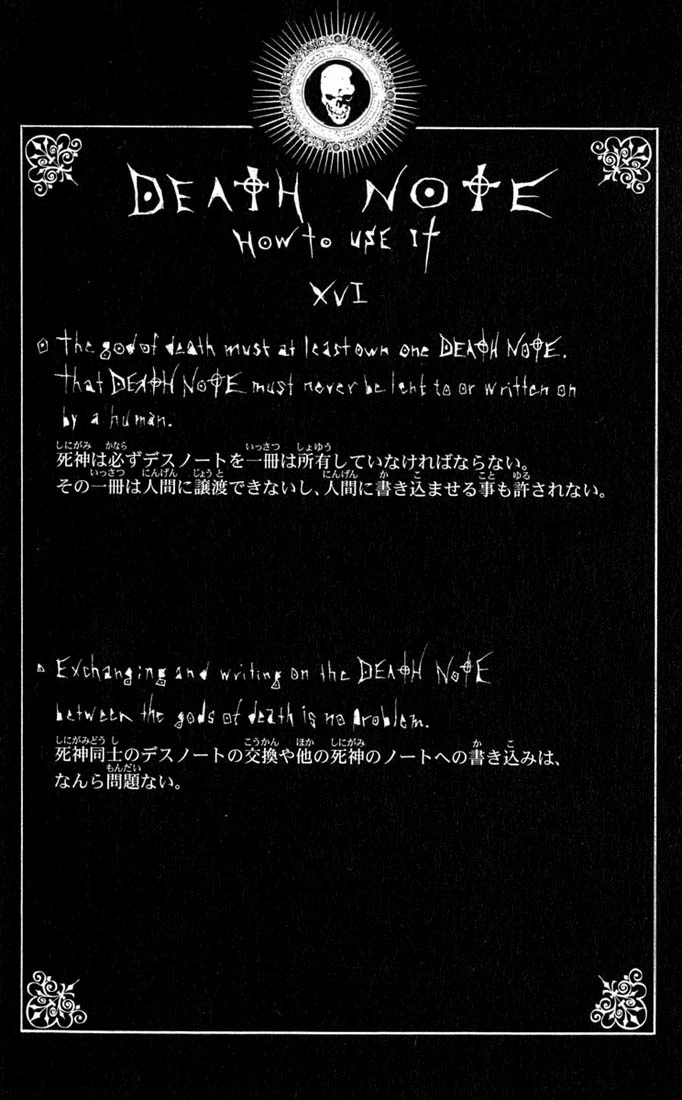 DEATH NOTE
HOW to USE IT
XVI
The god of death must at least own one DEATH NOTE.
That DEATH NOTE must never be lent to or written on
by a human.
死神は必ずデスノートを一冊は所有していなければならない。
その一冊は人間に譲渡できないし、人間に書き込ませる事も許されない。
Exchanging and writing on the DEATH NOTE
between the gods of death is no problem.
死神同士のデスノートの交換や他の死神のノートへの書き込みは、
なんら問題ない。